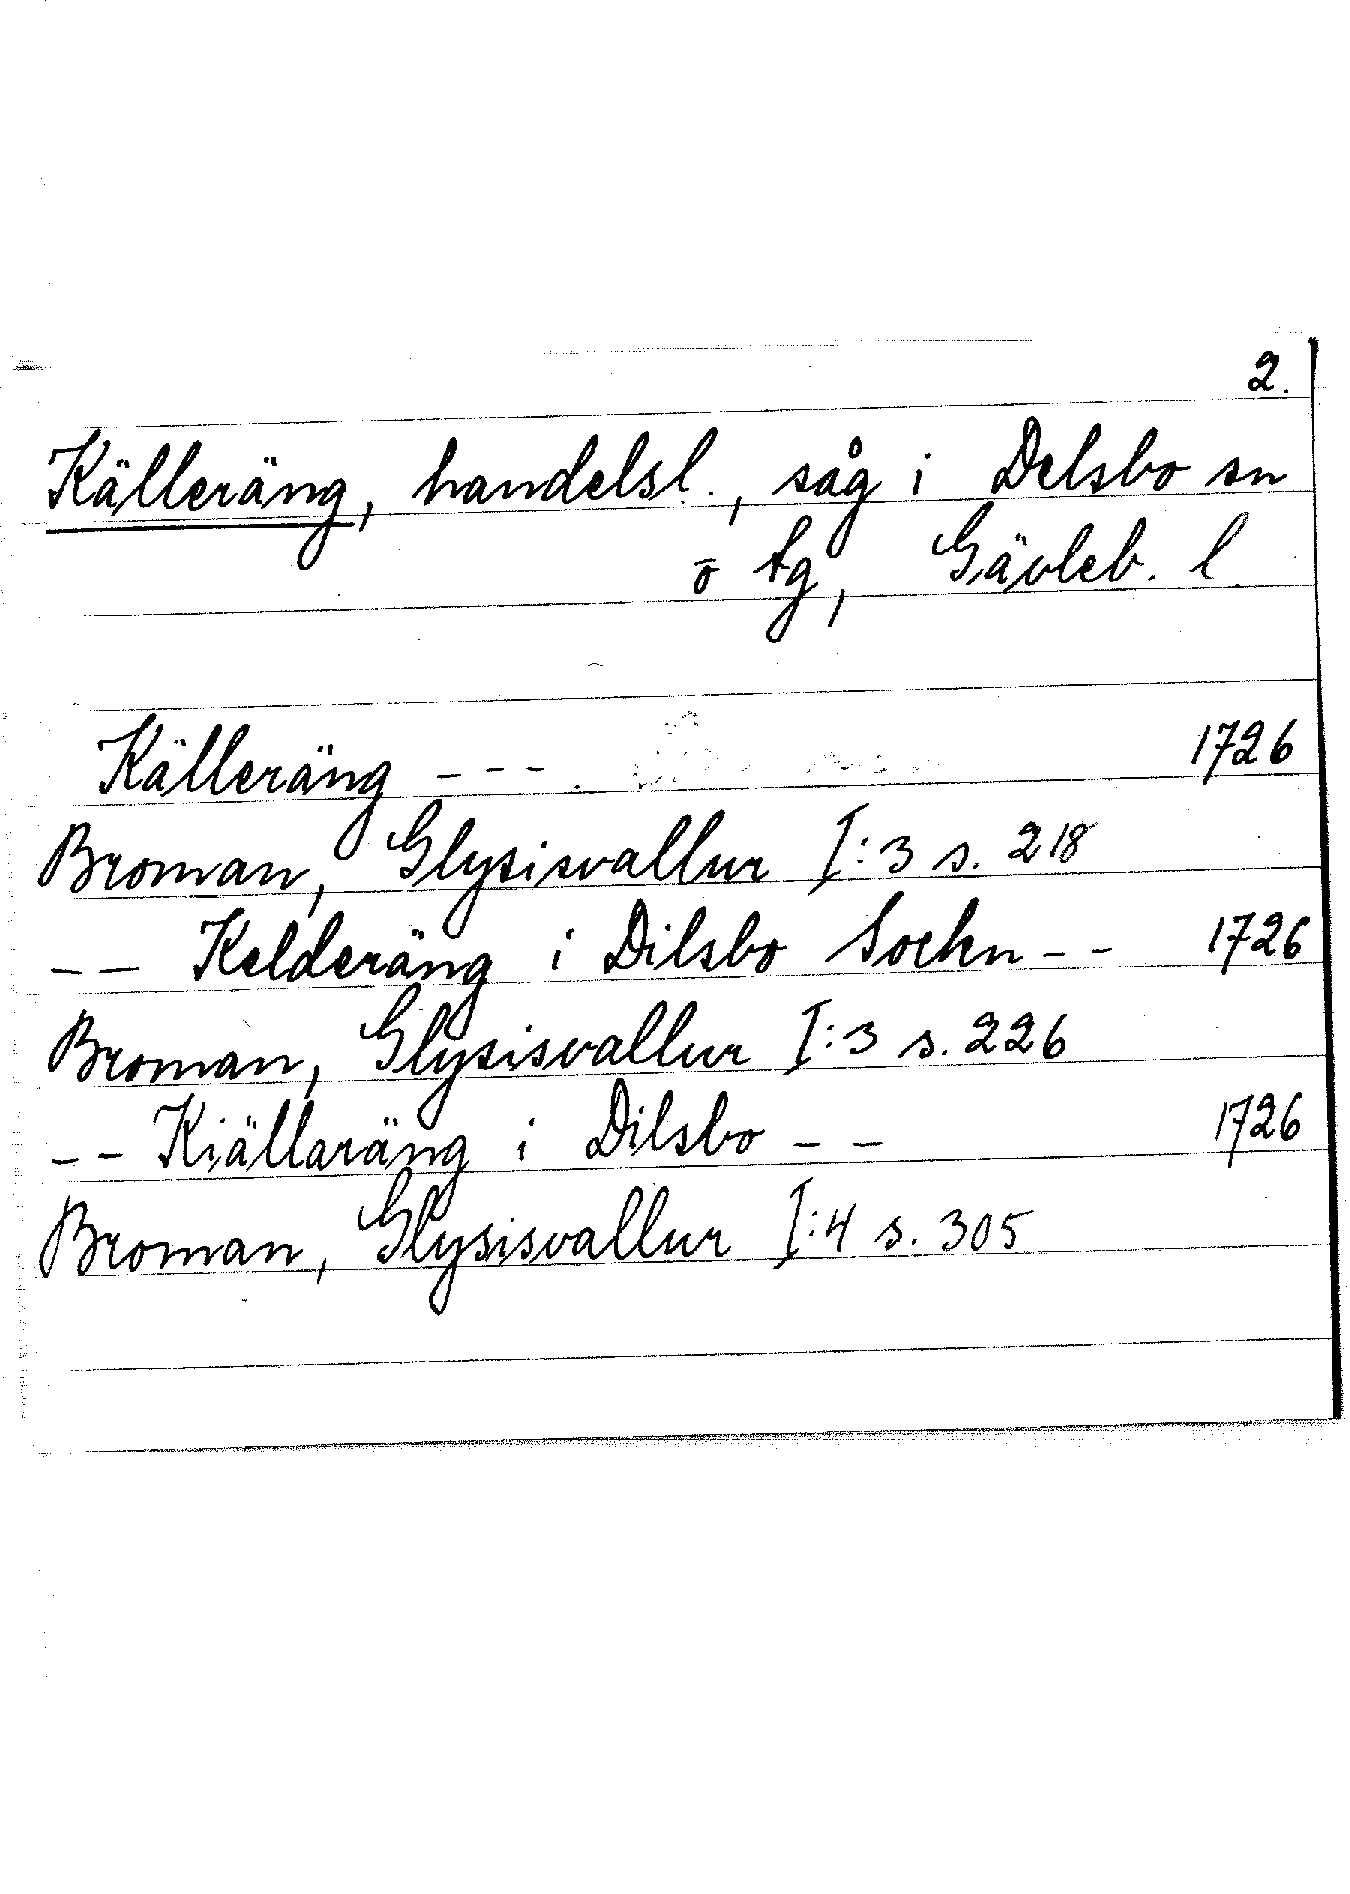 2.
Källeräng, handelsl., såg i Delsbo sn
o tg, Gävleb. l.
Källeräng - - - 1726
Broman, Glysisvallur I:3 s. 218
-- Kelderäng i Dilsbo Sockn -- 1726
Broman, Glysisvallur I:3 s. 226
-- Kiällaräng i Dilsbo -- 1726
Broman, Glysisvallur I:4 s. 305